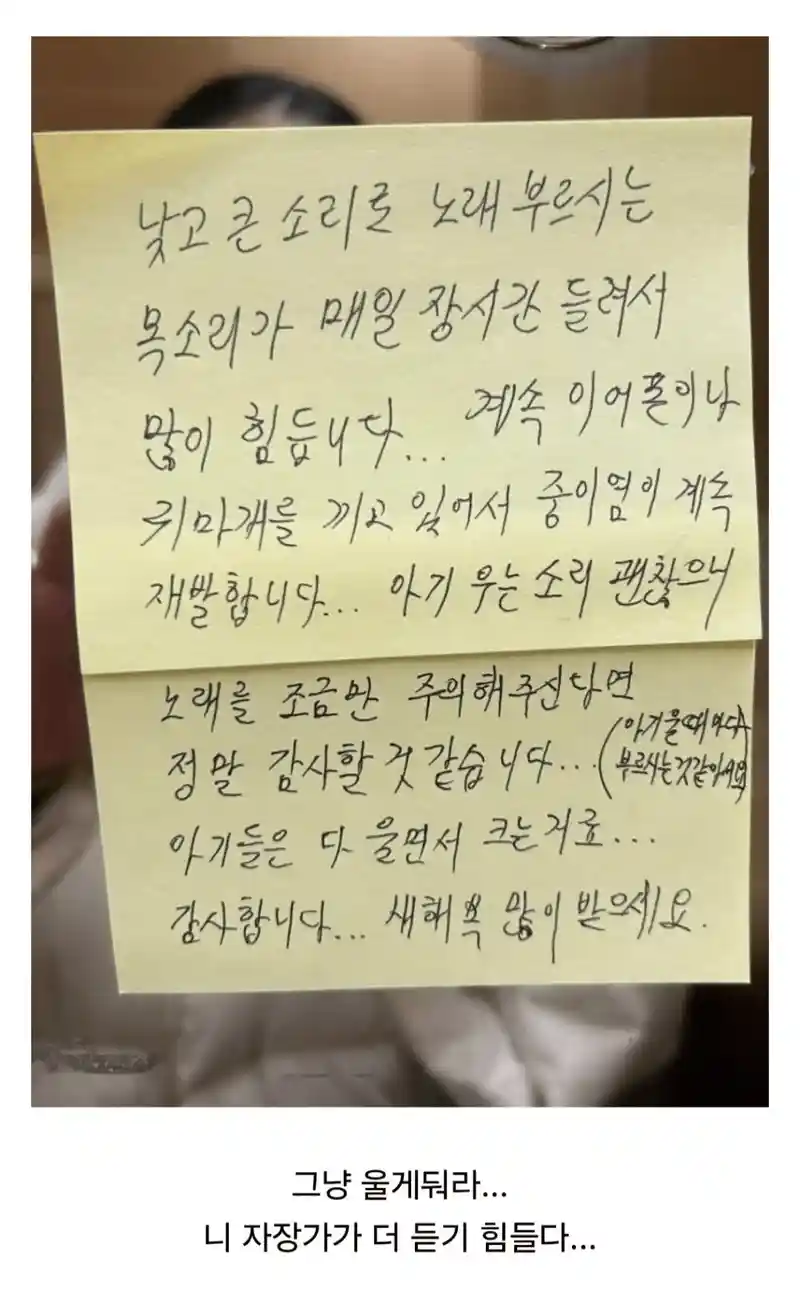 낮고 큰 소리로 노래 부르시는
목소리가 매일 장시간 들려서
많이 힘듭니다... 계속 이어폰이나
귀마개를 끼고 있어서 중이염이 계속
재발합니다... 아기 우는 소리 괜찮으니
노래를 조금만 주의해주신다면
정말 감사할 것 같습니다...(아기 울때마다
부르시는것같아서요)
아기들은 다 울면서 크는거죠...
감사합니다... 새해 복 많이 받으세요.
그냥 울게둬라...
니 자장가가 더 듣기 힘들다...